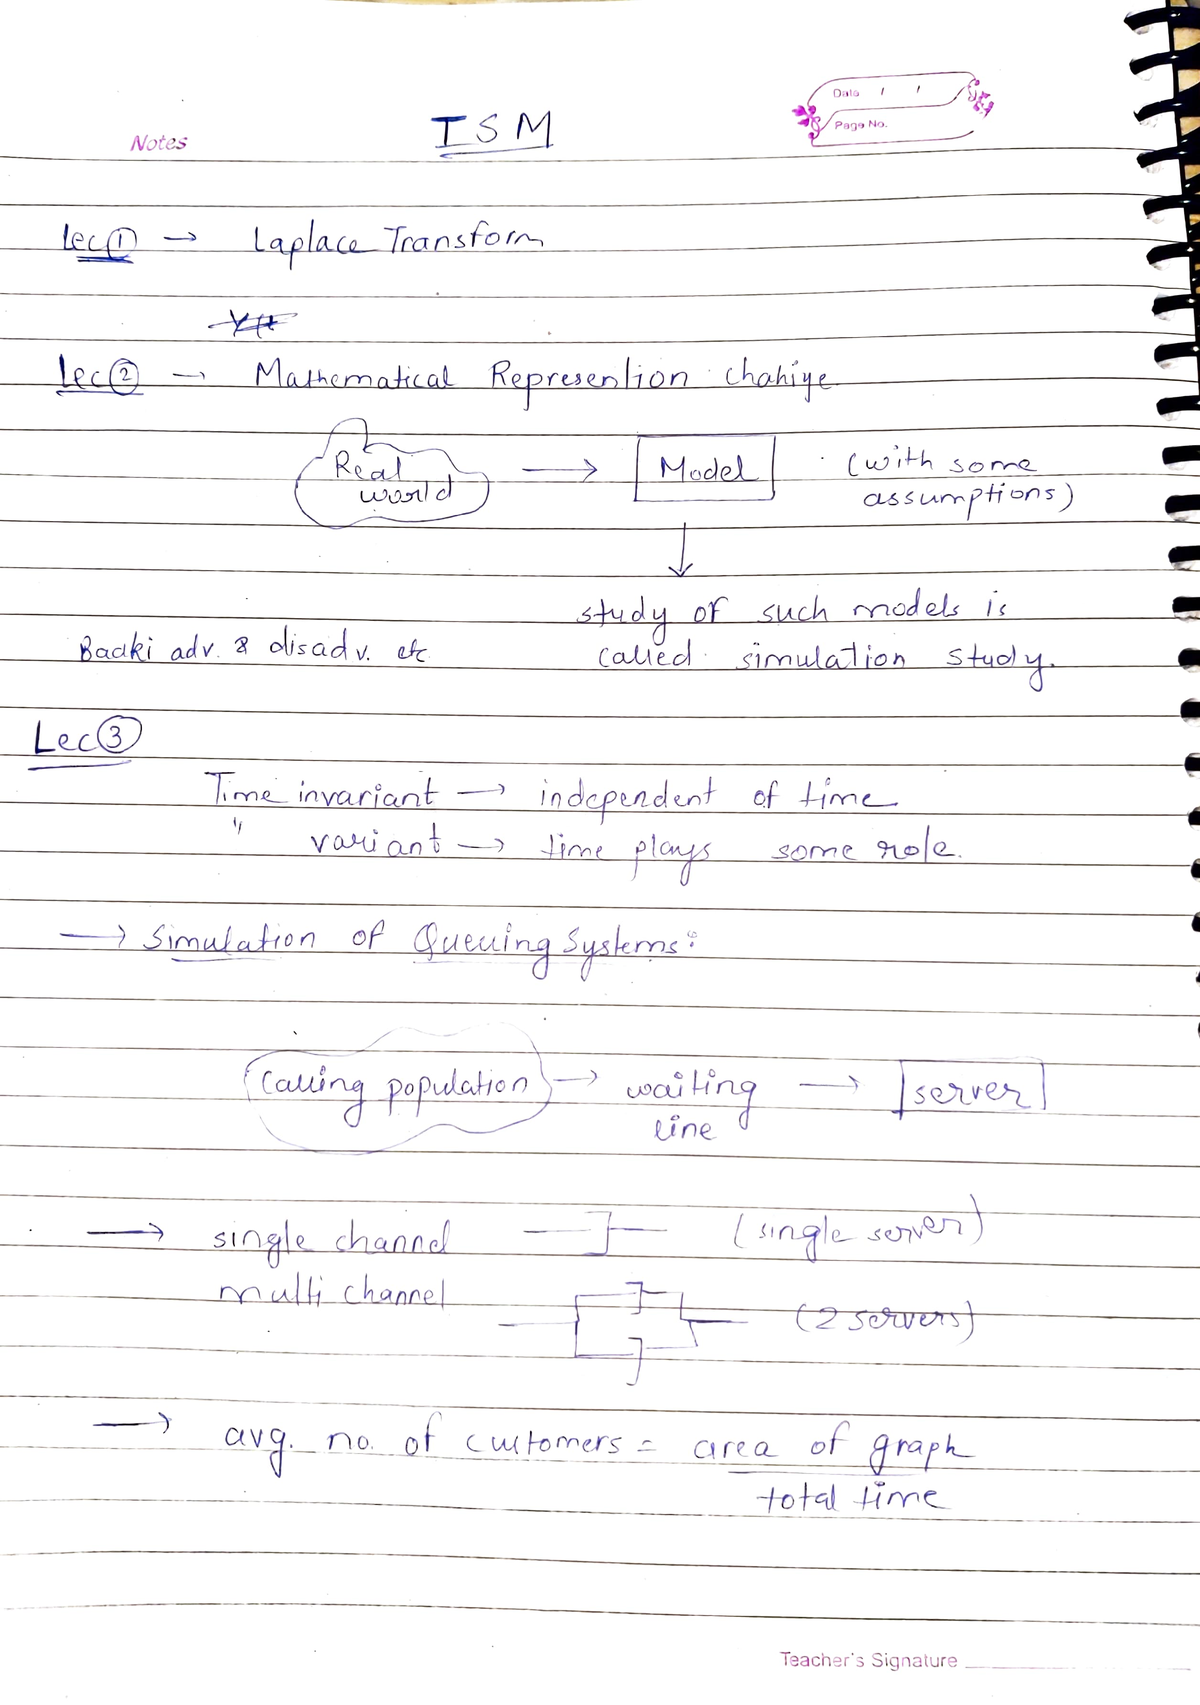 Notes
ISM
Date / /
Page No.
Lec ① → Laplace Transform
Lec ② → Mathematical Represention chahiye
Real world → Model (with some assumptions)
↓
study of such models is
called simulation study.
Baaki adv. & disadv. etc
Lec ③
Time invariant → independent of time
" variant → time plays some role.
→ Simulation of Queuing Systems:
Calling population → waiting line → server
→ single channel (single server)
multi channel (2 servers)
→ avg. no. of customers = area of graph
total time
Teacher's Signature